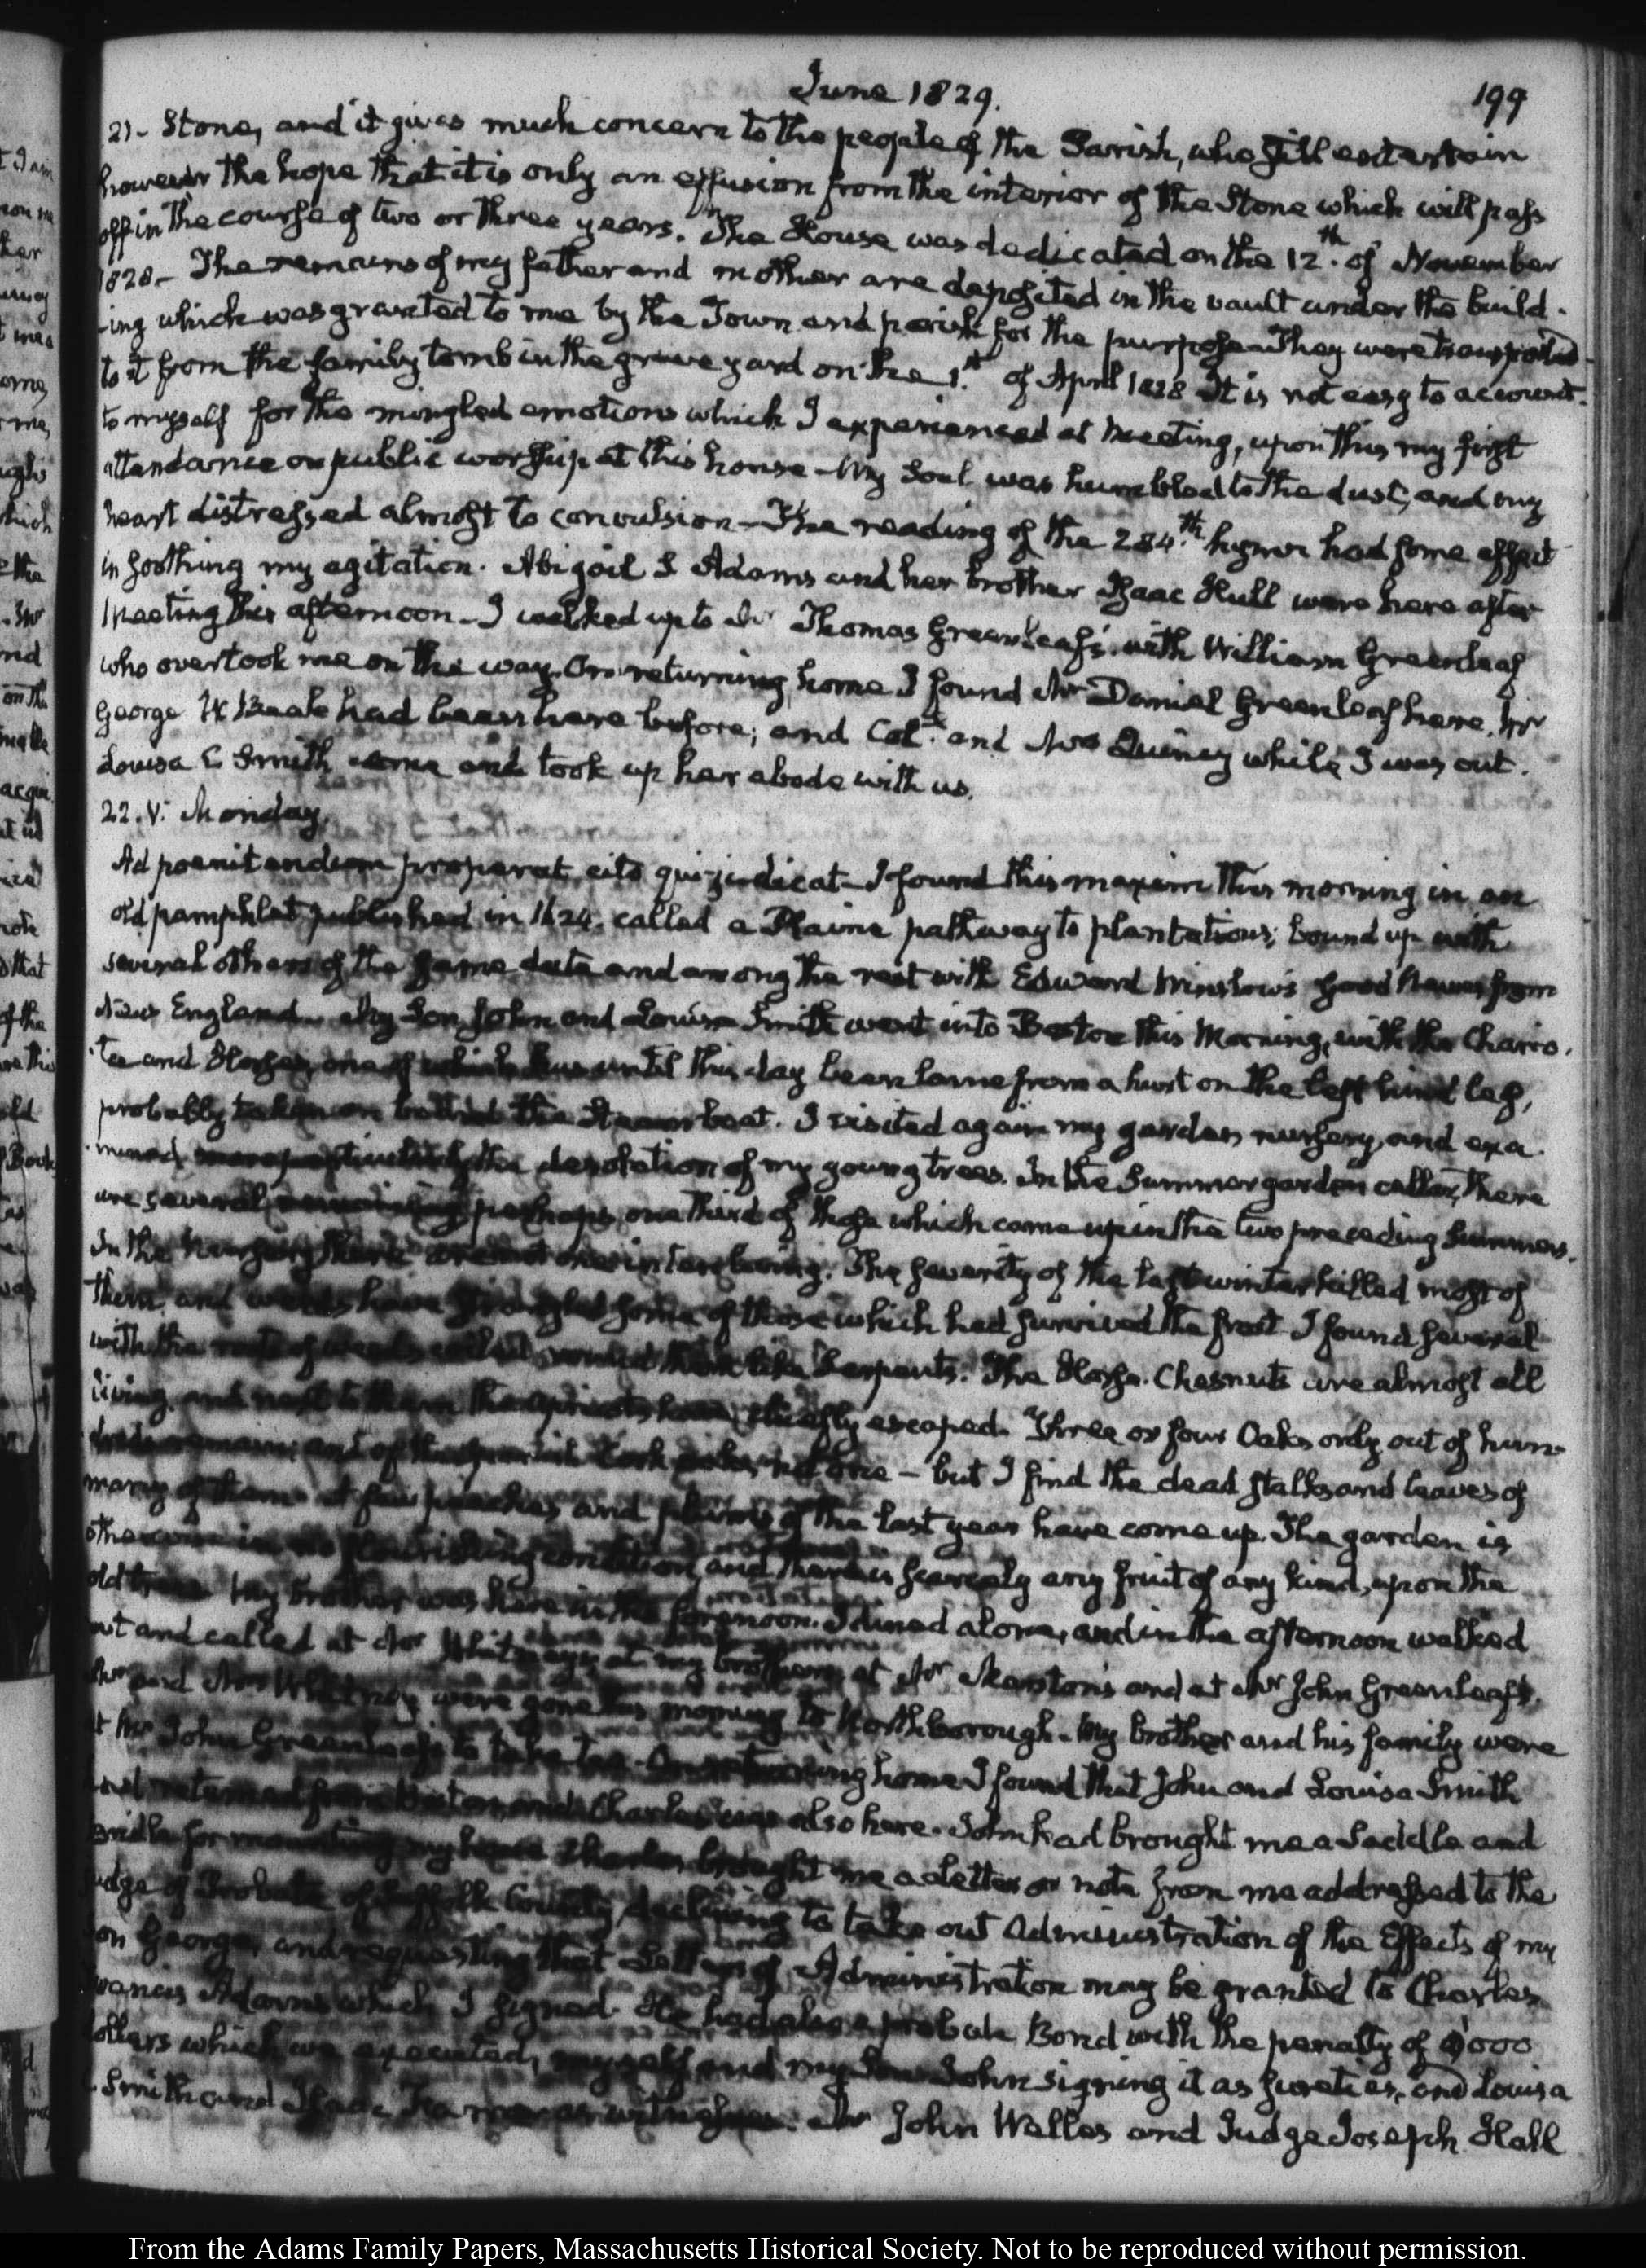 June 1829. 199
21- Stone, and it gives much concern to the people of the Parish, who still entertain
however the hope that it is only an effusion from the interior of the Stone which will pass
off in the course of two or three years. The House was dedicated on the 12.th of November
1828- The remains of my father and mother are deposited in the vault under the build-
-ing which was granted to me by the Town and parish for the purpose They were transported
to it from the family tomb in the grave yard on the 1.st of April 1828 It is not easy to account
to myself for the mingled emotions which I experienced at meeting, upon this my first
attendance on public worship at this house - My Soul was humbled to the dust, and my
heart distressed almost to convulsion - The reading of the 284.th hymn had some effect
in soothing my agitation. Abigail S Adams and her brother Isaac Hull were here after
Meeting this afternoon - I walked up to Mr Thomas Greenleaf's with William Greenleaf
who overtook me on the way. On returning home I found Mr Daniel Greenleaf here. Mr
George W Beale had been here before; and Col. and Mrs Quincy while I was out.
Louisa C Smith came and took up her abode with us.
22. V. Monday.
Ad poenitendum properat cito qui judicat - I found this maxim this morning in an
old pamphlet published in 1624. called a Plaine pathway to plantations; bound up with
several others of the same date and among the rest with Edward Winslow's good Newes from
New England. My Son John and Louisa Smith went into Boston this Morning, with the Chario-
tee and Horses, one of which has until this day been lame from a hurt on the left hind leg,
probably taken on board the Steam boat. I visited again my garden nursery, and exa-
mined more particularly the desolation of my young trees. In the Summer garden cellar, there
are several remaining perhaps one third of those which came up in the two preceding Summers.
In the Nursery there are not one in ten living. The severity of the last winter killed most of
them, and weeds have strangled some of those which had survived the frost I found several
with the roots of weeds coiled round them like Serpents. The Horse-Chesnuts are almost all
living and next to them the apricots have chiefly escaped. Three or four Oaks only out of hun-
dreds remain; and of the Cork oaks, not one - but I find the dead stalks and leaves of
many of them. A few peaches and plums of the last year have come up. The garden is
otherwise in no flourishing condition, and there is scarcely any fruit of any kind, upon the
old trees My brother was here in the forenoon. I dined alone, and in the afternoon walked
out and called at Mr Whitney's, at my brother's, at Mr Marston's and at Mr John Greenleaf's.
Mr and Mrs Whitney were gone this morning to Northborough. My brother and his family were
at Mr John Greenleaf's to take tea. On returning home I found that John and Louisa Smith
had returned from Boston, and Charles was also here. John had brought me a Saddle and
bridle for mounting my horse Charles brought me a letter or note from me addressed to the
Judge of Probate of Suffolk County, declining to take out Administration of the Effects of my
Son George, and requesting that Letters of Administration may be granted to Charles
Francis Adams which I signed. He had also a probate Bond with the penalty of
dollars which we executed, myself and my Son John signing it as sureties, and Louisa
C. Smith and Isaac as witnesses. Mr John Welles and Judge Joseph Hall
From the Adams Family Papers, Massachusetts Historical Society. Not to be reproduced without permission.